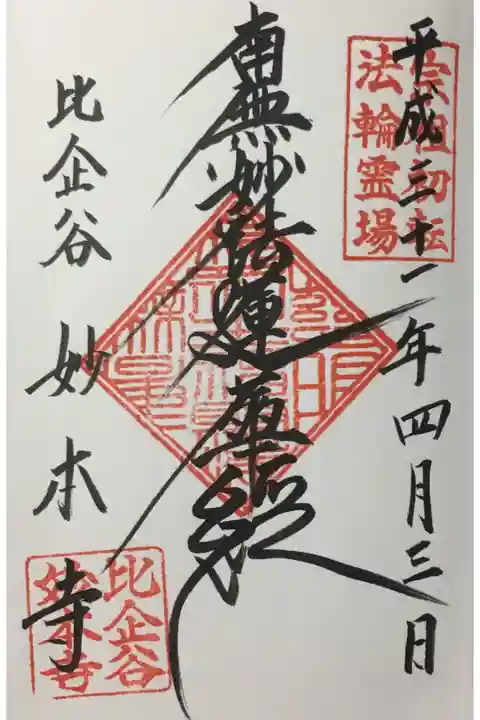 平成三十一年四月三日
宗祖初転
法輪霊場
南無妙法蓮華経
比企谷 妙本寺
比企谷
妙本寺